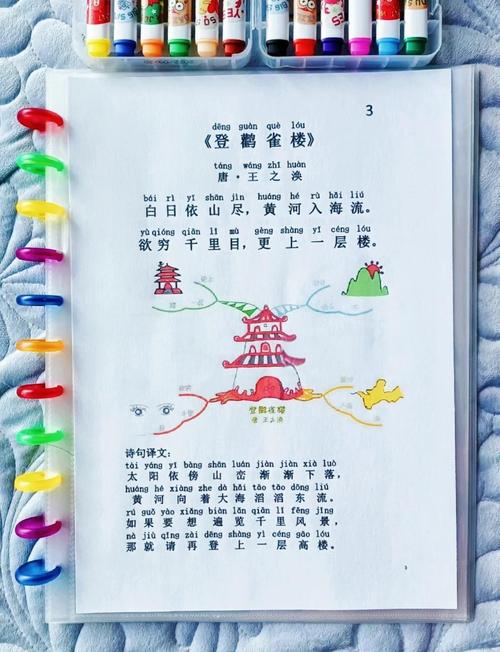 3
dēng guàn què lóu
《登鹳雀楼》
táng wáng zhī huàn
唐·王之涣
bái rì yī shān jìn huáng hé rù hǎi liú
白日依山尽，黄河入海流。
yù qióng qiān lǐ mù gèng shàng yī céng lóu
欲穷千里目，更上一层楼。
登鹳雀楼
唐 王之涣
诗句译文：
tài yáng yī bàng shān luán jiàn jiàn xià luò
太阳依傍山峦渐渐下落，
huáng hé xiàng zhe dà hǎi tāo tāo dōng liú
黄河向着大海滔滔东流。
rú guǒ yào xiǎng biàn lǎn qiān lǐ fēng jǐng
如果要想遍览千里风景，
nà jiù qǐng zài dēng shàng yī céng gāo lóu
那就请再登上一层高楼。